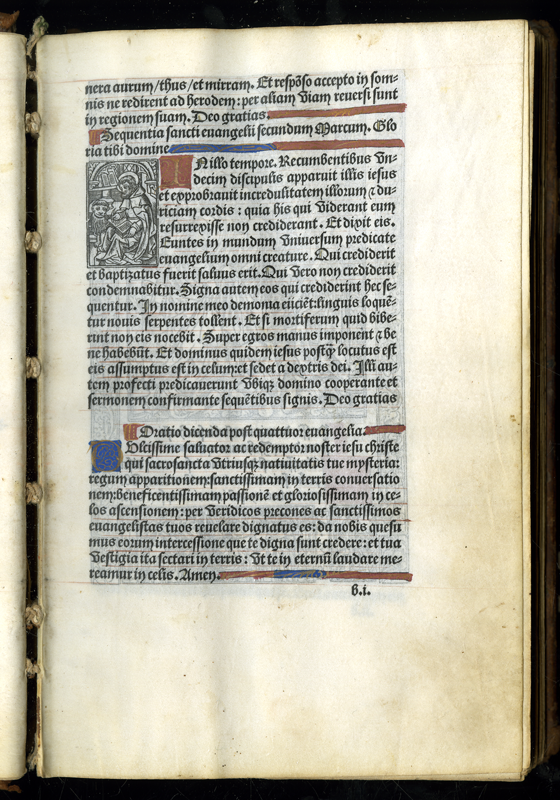 nera aurum/thus/et mirram. Et respōso accepto in som-
nis ne redirent ad herodem: per aliam viam reuersi sunt
in regionem suam. Deo gratias.
Sequentia sancti euangelii secundum Marcum. Glo
ria tibi domine
IN illo tempore. Recumbentibus vn-
decim discipulis apparuit illis iesus
et exprobrauit incredulitatem illorum ⁊ du-
riciam cordis: quia his qui viderant eum
resurrexisse non crediderant. Et dixit eis.
Euntes in mundum vniuersum predicate
euangelium omni creature. Qui crediderit
et baptizatus fuerit saluus erit. Qui vero non crediderit
condemnabitur. Signa autem eos qui crediderint hec se-
quentur. In nomine meo demonia eiiciēt: linguis loquē-
tur nouis serpentes tollent. Et si mortiferum quid bibe-
rint non eis nocebit. Super egros manus imponent ⁊ be
ne habebūt. Et dominus quidem iesus postꝙ̄ locutus est
eis assumptus est in celum: et sedet a dextris dei. Illi au-
tem profecti predicauerunt vbiqꝫ domino cooperante et
sermonem confirmante sequētibus signis. Deo gratias
Oratio dicenda post quattuor euangelia.
Dulcissime saluator ac redemptor noster iesu christe
qui sacrosancta vtriusqꝫ natiuitatis tue mysteria:
regum apparitionem: sanctissimam in terris conuersatio
nem: beneficentissimam passionē et gloriosissimam in ce-
los ascensionem: per veridicos precones ac sanctissimos
euangelistas tuos reuelare dignatus es: da nobis quesu
mus eorum intercessione que te digna sunt credere: et tua
vestigia ita sectari in terris: vt te in eternū laudare me-
reamur in celis. Amen.
b.i.